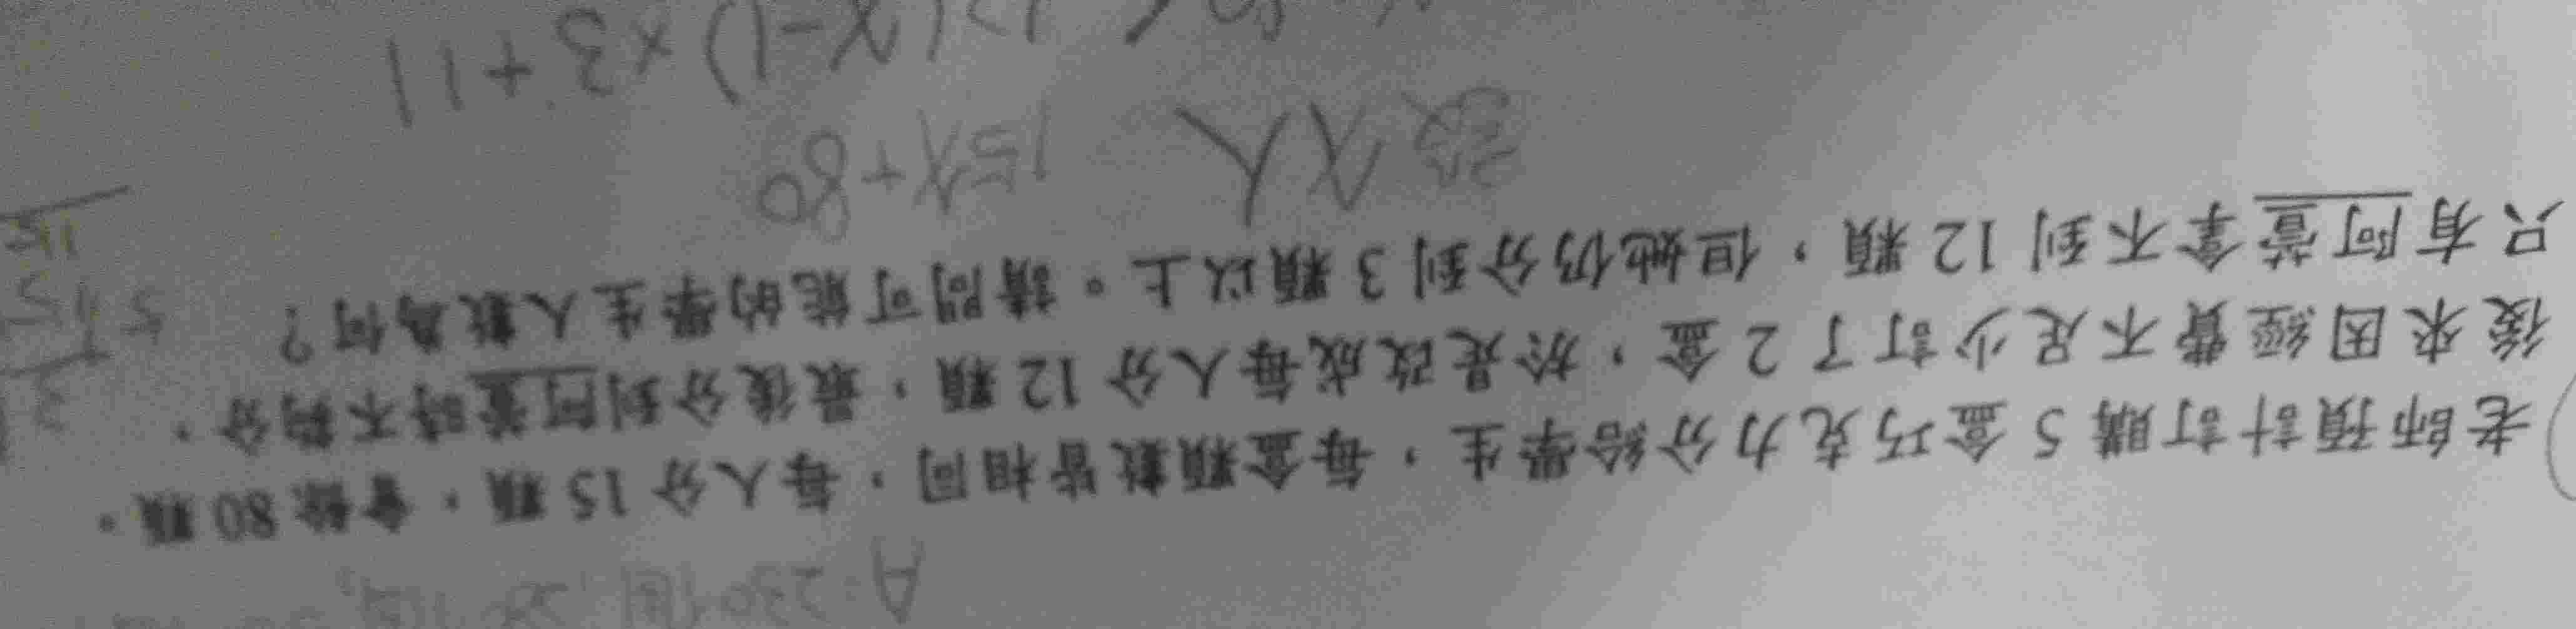 A: 230個
老師預計訂購 5 盒巧克力分給學生，每盒顆數皆相同，每人分 15 顆，會餘 80 顆。
後來因經費不足少訂了 2 盒，於是改成每人分 12 顆，最後分到阿萱時不夠分，
只有阿萱拿不到 12 顆，但她仍分到 3 顆以上。請問可能的學生人數為何？
設 X 人 15X+80
(X-1)×3+11